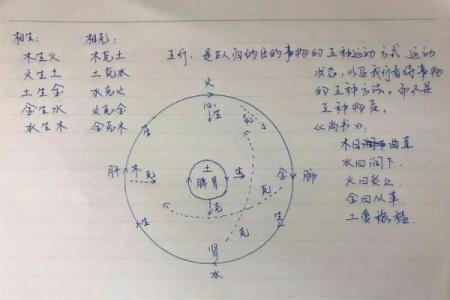 相生:
木生火
火生土
土生金
金生水
水生木
相克:
木克土
土克水
水克火
火克金
金克木
五行,是古人归纳出的事物的五种运动方式、运动
状态,以及我们看待事物
的五种方法。而不是
五种物质。
《尚书》:
木曰曲直
水曰润下.
火曰炎上.
金曰从革.
土爰稼穑.
火
心
生
生
肝
木
克
土
脾胃
生
金
肺
克
克
克
生
生
肾
水